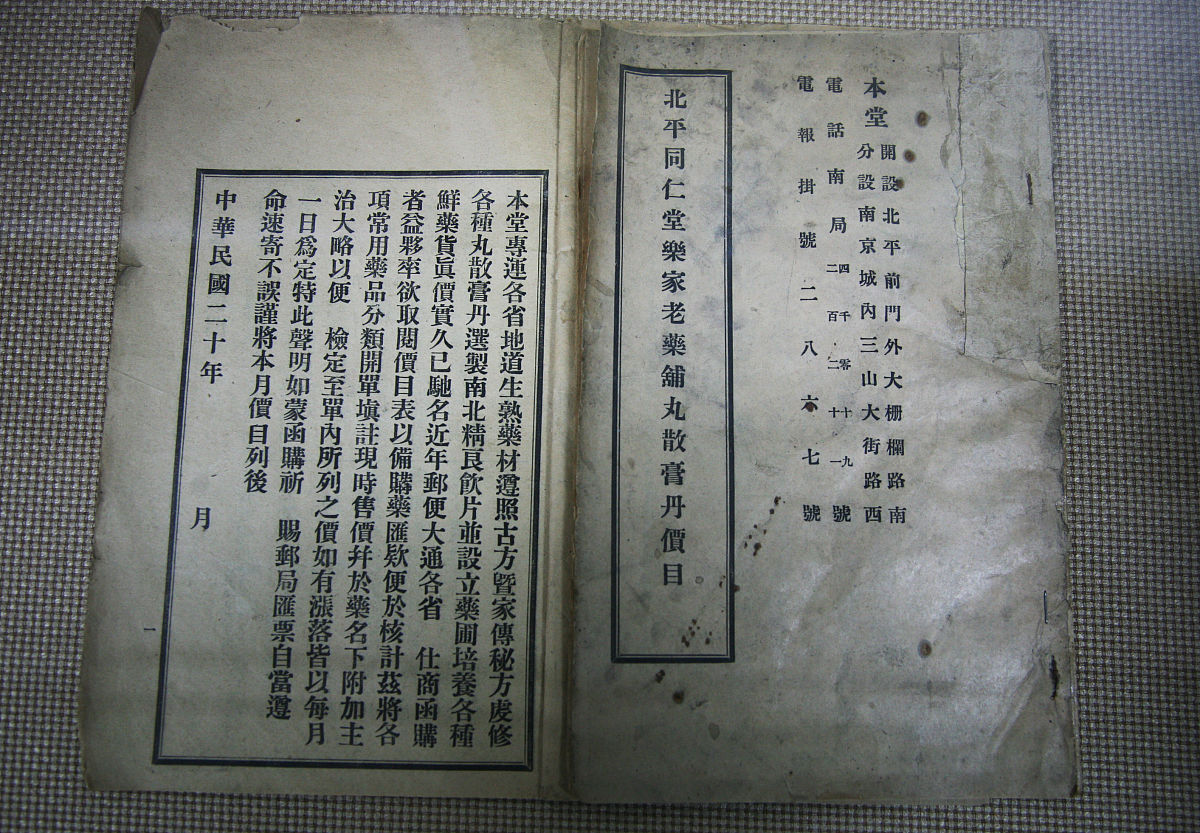 本堂
開設北平前門外大柵欄路南
分設南京城內三山大街路西
電話南局四千零十九號
二百二十一
電報掛號二八六七號
北平同仁堂樂家老藥舖丸散膏丹價目
本堂專運各省地道生熟藥材遵照古方曁家傳秘方虔修
各種丸散膏丹選製南北精良飲片並設立藥圃培養各種
鮮藥貨眞價實久已馳名近年郵便大通各省 仕商函購
者益夥率欲取閱價目表以備購藥匯欵便於核計茲將各
項常用藥品分類開單塡註現時售價幷於藥名下附加主
治大略以便 檢定至單內所列之價如有漲落皆以每月
一日爲定特此聲明如蒙函購祈 賜郵局匯票自當遵
命速寄不誤謹將本月價目列後
中華民國二十年 月
一